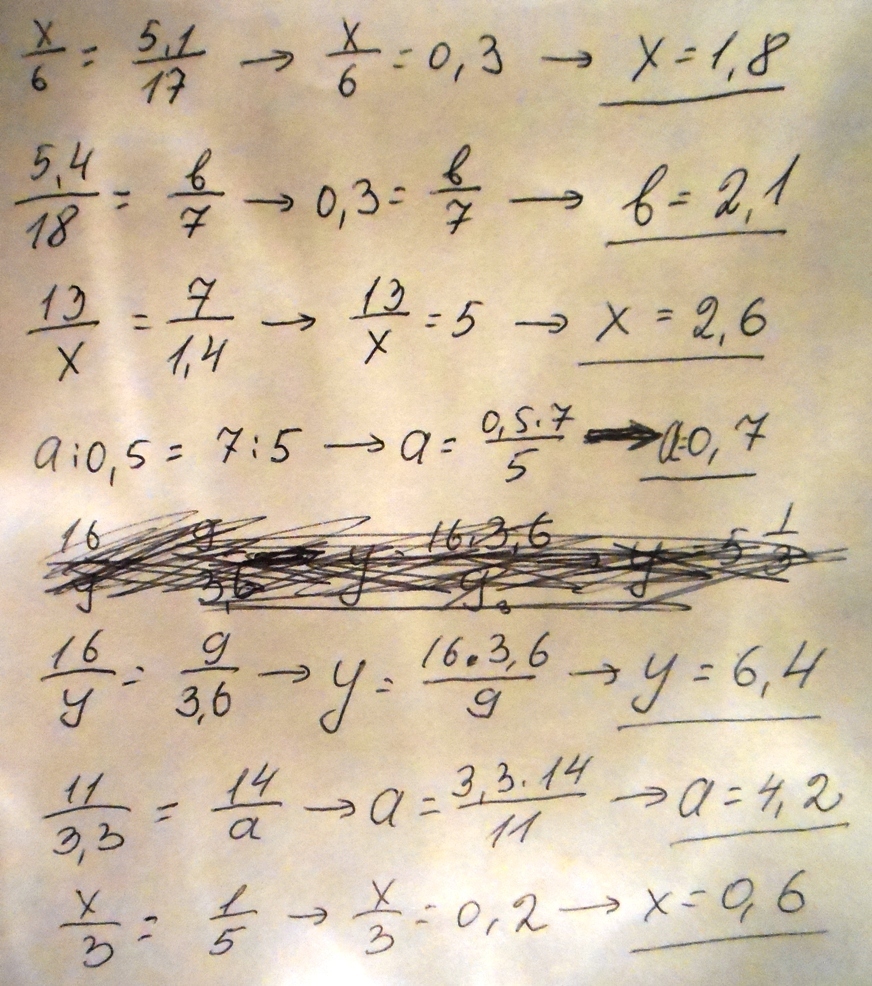 x/6 = 5,1/17 → x/6 = 0,3 → x = 1,8
5,4/18 = в/7 → 0,3 = в/7 → в = 2,1
13/x = 7/1,4 → 13/x = 5 → x = 2,6
a:0,5 = 7:5 → a = 0,5·7/5 → a=0,7
16/y 9/3,6 y = 16·3,6/9 y = 5 1/3
16/y = 9/3,6 → y = 16·3,6/9 → y = 6,4
11/3,3 = 14/a → a = 3,3·14/11 → a = 4,2
x/3 = 1/5 → x/3 = 0,2 → x = 0,6